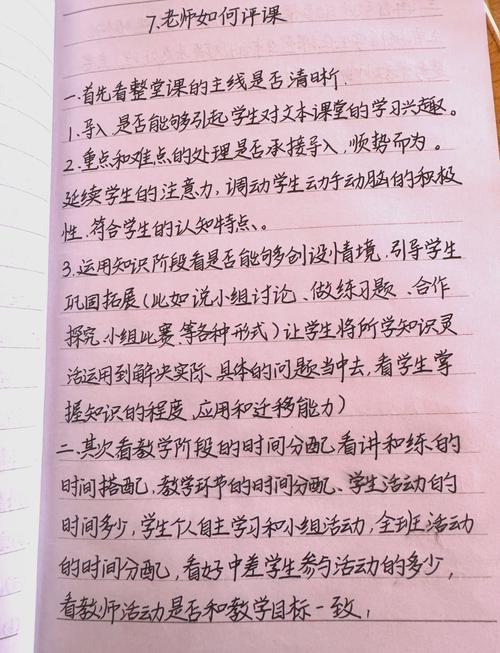 7.老师如何评课
一.首先看整堂课的主线是否清晰.
1.导入是否能够引起学生对文本课堂的学习兴趣。
2.重点和难点的处理是否承接导入,顺势而为。
延续学生的注意力,调动学生动手动脑的积极
性.符合学生的认知特点、。
3.运用知识阶段看是否能够多创设情境,引导学生
巩固拓展(比如说小组讨论、做练习题、合作
探究.小组比赛.等各种形式)让学生将所学知识灵
活运用到解决实际、具体的问题当中去,看学生掌
握知识的程度、应用和迁移能力)
二.其次看教学阶段的时间分配看讲和练的
时间搭配.教学环节的时间分配、学生活动的
时间多少,学生个人自主学习和小组活动,全班活动
的时间分配,看好中差学生参与活动的多少,
看教师活动是否和教学目标一致,